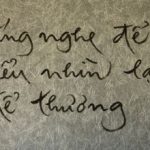 ng nghe để
ểu nhìn lạ
ể thương